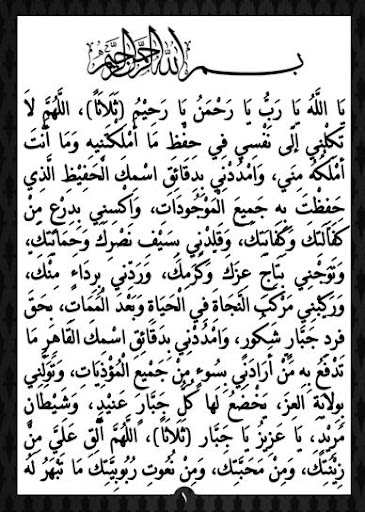 بسم الله الرحمن الرحيم
يَا اللَّهُ يَا رَبُّ يَا رَحْمَنُ يَا رَحِيْمُ (ثَلَاثاً)، اللَّهُمَّ لاَ
تَكِلْنِي إِلَى نَفْسِي فِي حِفْظِ مَا أَمْلَكْتَنِيهِ وَمَا أَنْتَ
أَمْلَكُهُ مِنِّي، وَامْدُدْنِي بِدَقَائِقِ اسْمِكَ الْحَفِيْظِ الَّذِي
حَفِظْتَ بِهِ جَمِيعَ الْمَوْجُودَاتِ، وَاكْسُنِي بِدِرْعٍ مِنْ
كَفَالَتِكَ وَكِفَايَتِكَ، وَقَلِّدْنِي بِسَيْفِ نَصْرِكَ وَحِمَايَتِكَ،
وَتَوِّجْنِي بِتَاجِ عِزِّكَ وَكَرَمِكَ، وَرَدِّنِي بِرِدَاءٍ مِنْكَ،
وَرَكِّبْنِي مَرْكَبَ النَّجَاةِ فِي الْحَيَاةِ وَبَعْدَ الْمَمَاتِ، بِحَقِّ
فَرد جَبَّارٍ شَكُورٍ، وَامْدُدْنِي بِدَقَائِقِ اسْمِكَ القَاهِرِ مَا
تَدْفَعُ بِهِ مَنْ أَرَادَنِي بِسُوءٍ مِنْ جَمِيْعِ الْمُؤْذِيَاتِ، وَتَوَلَّنِي
بِوِلَايَةِ العِزِّ، يَخْضَعُ لَهَا كُلُّ جَبَّارٍ عَنِيْدٍ، وَشَيْطَانٍ
مَرِيْدٍ، يَا عَزِيزُ يَا جَبَّار (ثَلَاثاً)، اللَّهُمَّ أَلْقِ عَلَيَّ مِنْ
زِيْنَتِكَ، وَمِنْ مَحَبَّتِكَ، وَمِنْ نُعُوتِ رُبُوبِيَّتِكَ مَا تَبْهَرُ لَهُ
١